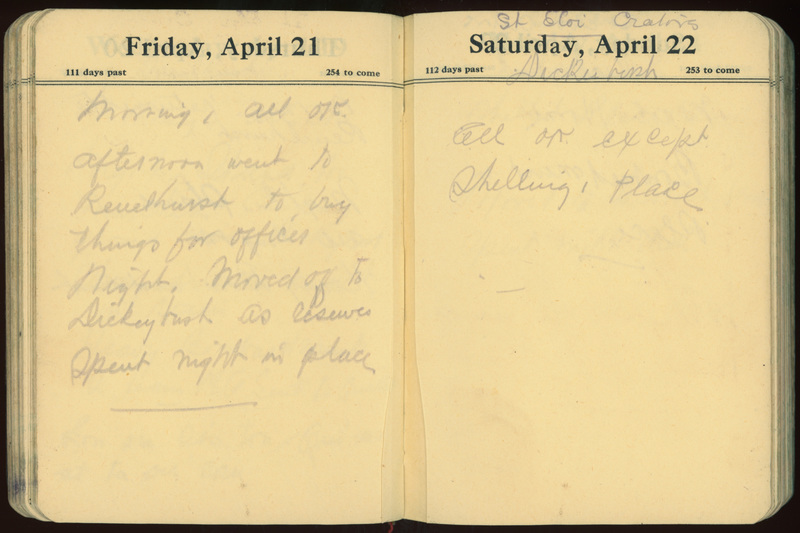 Friday, April 21
111 days past 254 to come
Morning, all ok.
afternoon went to
Renelhurst to buy
things for officers
Night. Moved off to
Dickeybush as reserves
Spent night in place
St Eloi Craters
Saturday, April 22
112 days past 253 to come
Dickiebush
all ok. except
Shelling, Place